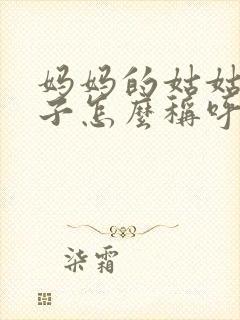 妈妈的姑姑
子怎麽稱呼
柒霜